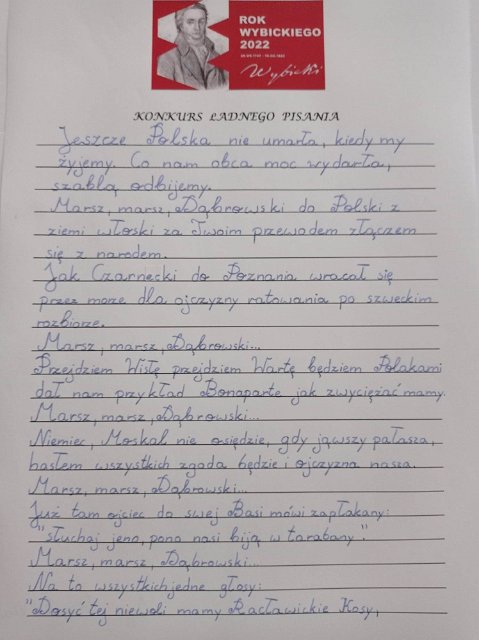 ROK
WYBICKIEGO
2022
Wybicki
KONKURS ŁADNEGO PISANIA
Jeszcze Polska nie umarła, kiedy my
żyjemy. Co nam obca moc wydarła,
szablą odbijemy.
Marsz, marsz, Dąbrowski do Polski z
ziemi włoski za Twoim przewodem złączem
się z narodem.
Jak Czarnecki do Poznania wracał się
przez morze dla ojczyzny ratowania po szweckim
rozbiorze.
Marsz, marsz, Dąbrowski...
Przejdziem Wisłę przejdziem Wartę będziem Polakami
dał nam przykład Bonaparte jak zwyciężać mamy.
Marsz, marsz, Dąbrowski...
Niemiec, Moskal nie osiędzie, gdy jąwszy pałasza,
hasłem wszystkich zgoda będzie i ojczyzna nasza.
Marsz, marsz, Dąbrowski...
Już tam ojciec do swej Basi mówi zapłakany:
"słuchaj jeno, pono nasi biją w tarabany".
Marsz, marsz, Dąbrowski...
Na to wszystkich jedne głosy:
"Dosyć tej niewoli mamy Racławickie Kosy,